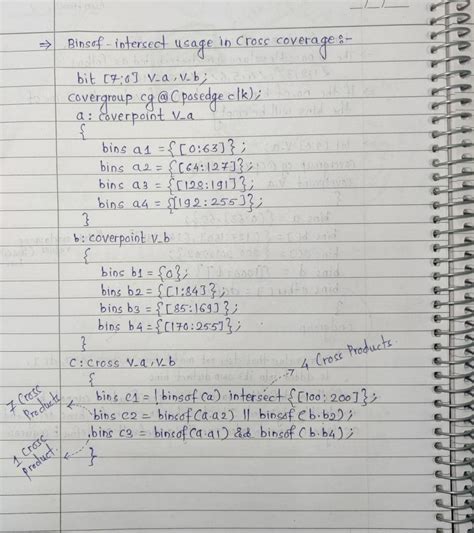 ⇒ Binsof - intersect usage in Cross coverage :-
bit [7:0] V_a, V_b;
covergroup cg @(posedge clk);
a: coverpoint V_a
{
bins a1 = {[0:63]};
bins a2 = {[64:127]};
bins a3 = {[128:191]};
bins a4 = {[192:255]};
}
b: coverpoint V_b
{
bins b1 = {0};
bins b2 = {[1:84]};
bins b3 = {[85:169]};
bins b4 = {[170:255]};
}
C: cross V_a, V_b
4 Cross Products.
{
bins c1 = !binsof(a) intersect {[100:200]};
7 Cross Products
bins c2 = binsof(a.a2) || binsof(b.b2);
bins c3 = binsof(a.a1) && binsof(b.b4);
1 Cross product.
}